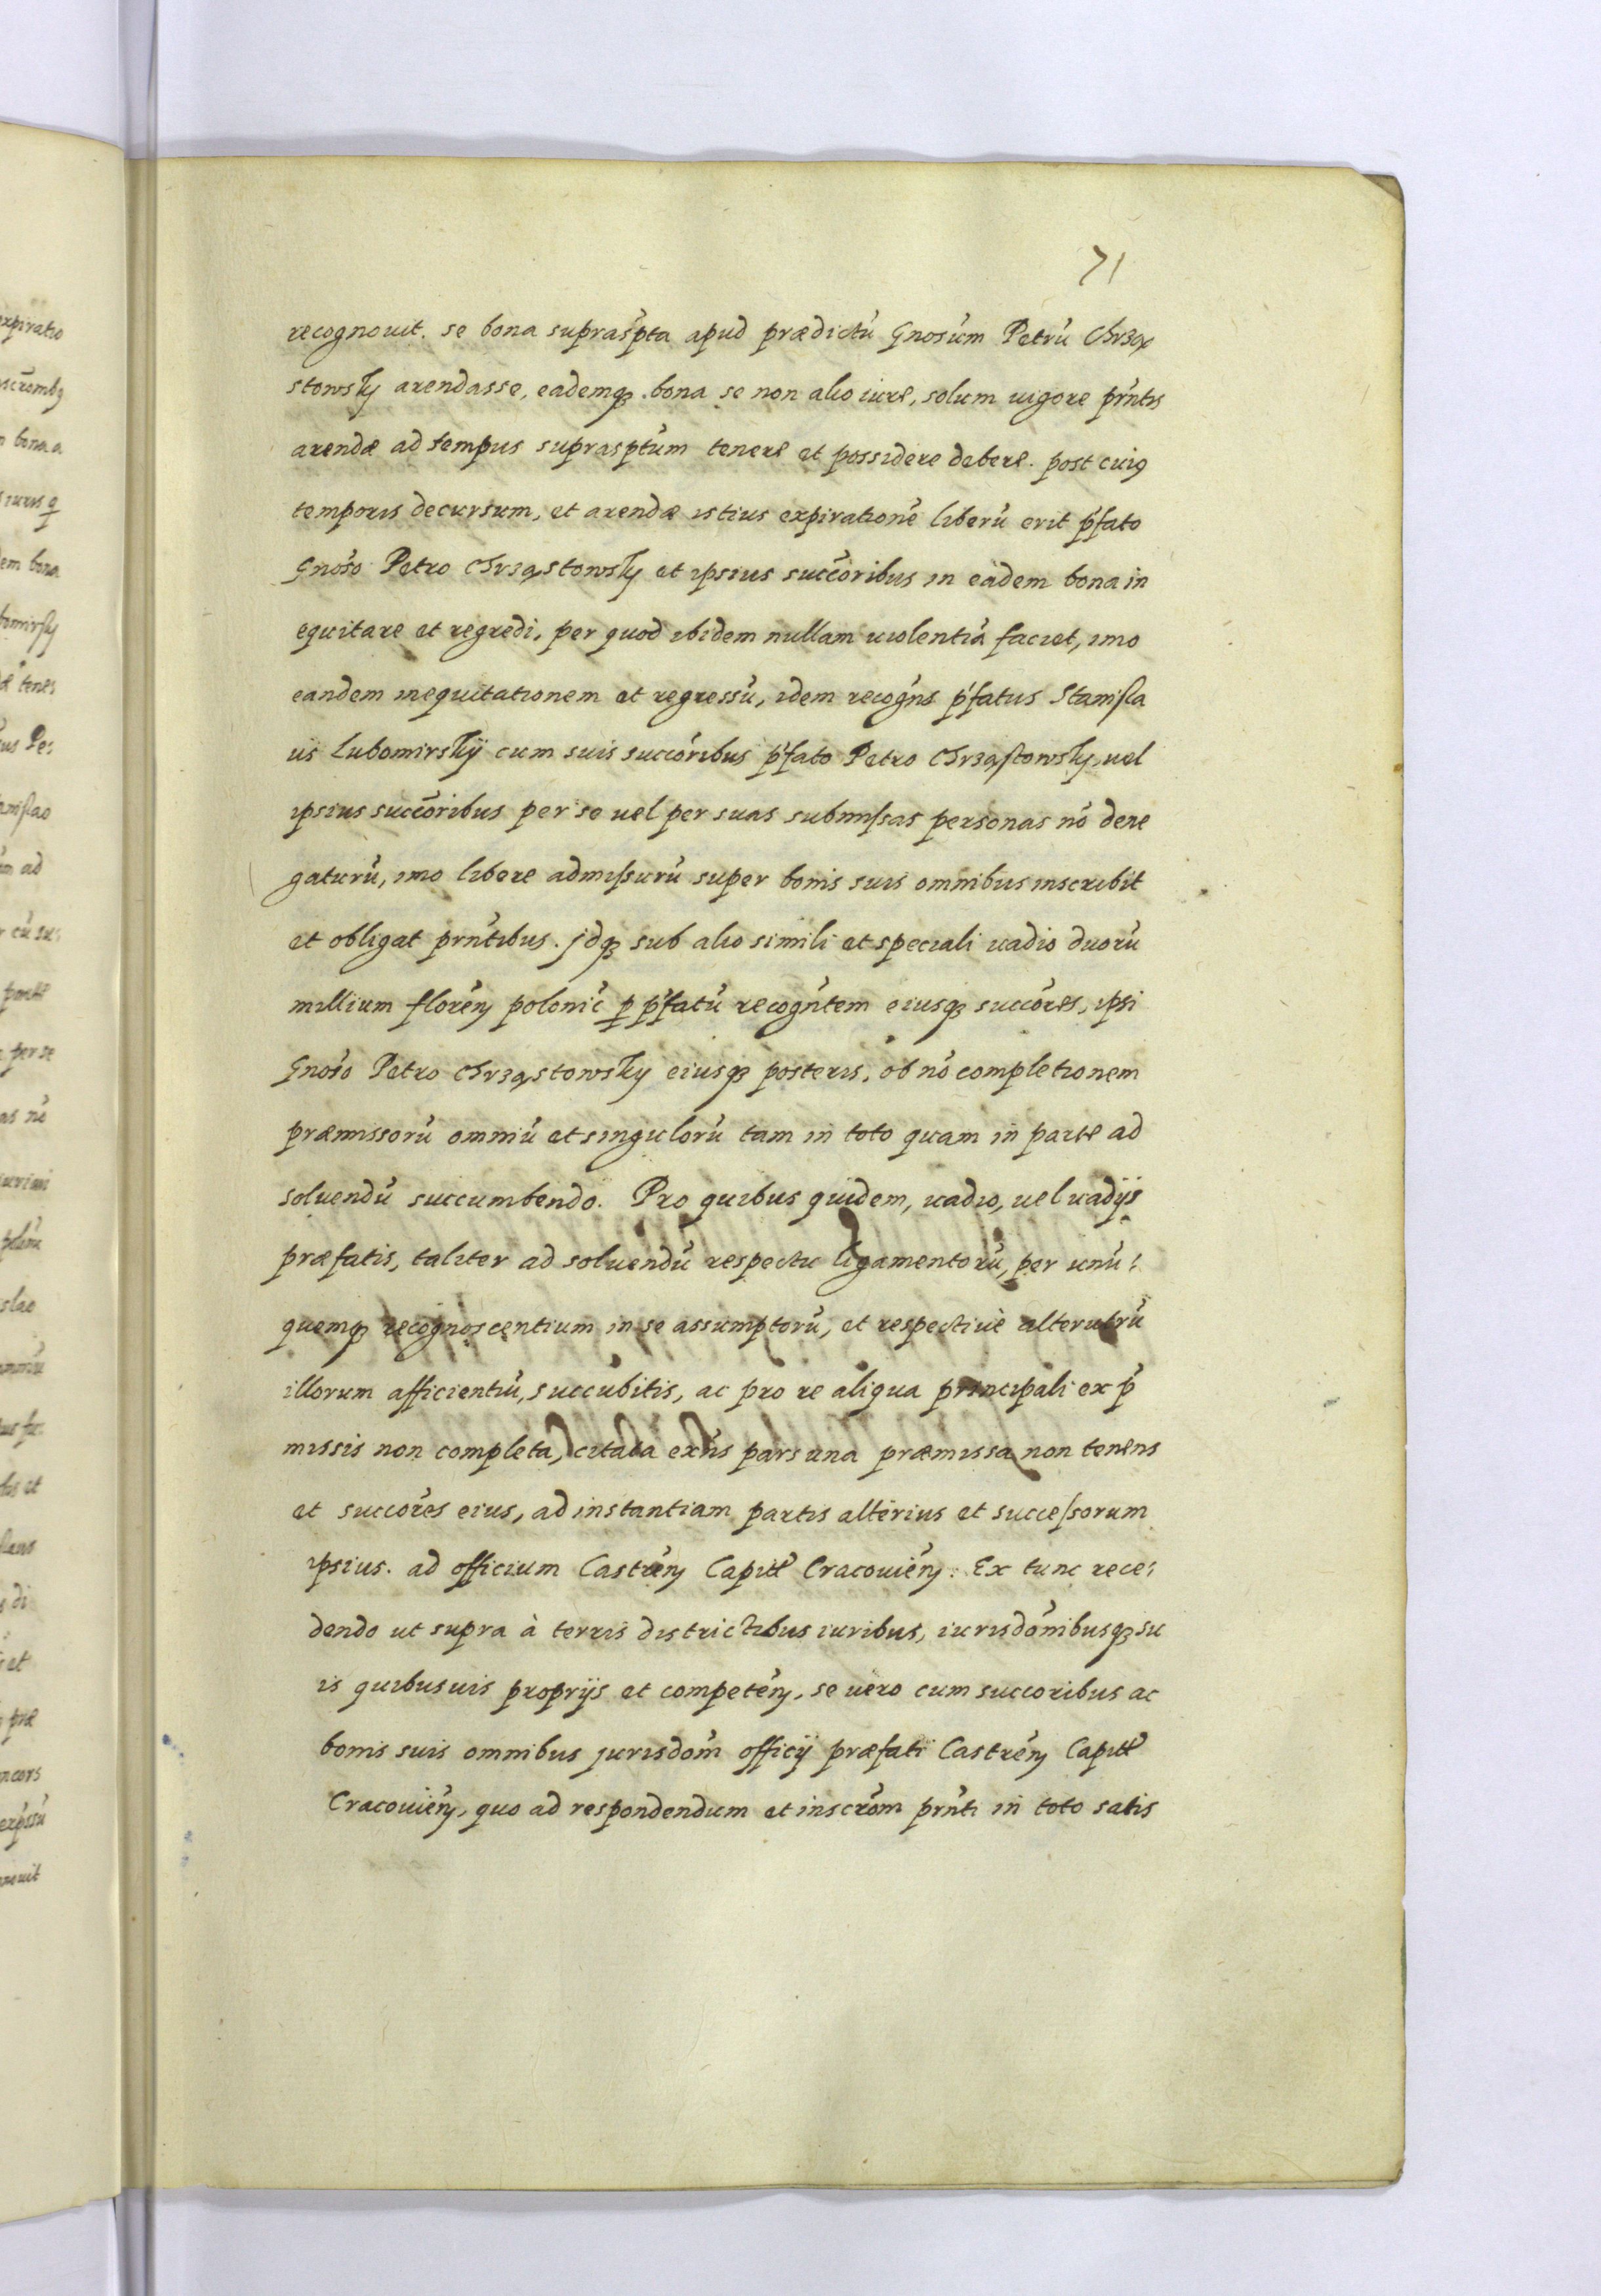 71
recognouit. se bona supras̃pta apud prædictũ Gnosũm Petrũ Chrząstowsky
stowsky arendasse, eademq₃ bona se non alio iure, solum uigore prñtis
arendæ ad tempus supras̃ptum tenere et possidere debere. post cuiq
temporis decursum, et arendæ istius expirationẽ liberũ erit p̃fato
Gnoso Petro Chrząstowsky et ipsius succõribus in eadem bona in
equitare et regredi, per quod ibidem nullam uiolentiã faciet, imo
eandem inequitationem et regressũ, idem recogñs p̃fatus Stanisla
us Lubomirskÿ cum suis succõribus p̃fato Petro Chrząstowsky, uel
ipsius succõribus per se uel per suas submissas personas nõ dene
gaturũ, imo libere admissurũ super bonis suis omnibus inscribit
et obligat prñtibus. jdq₃ sub alio simili et speciali uadio duorũ
millium florẽn polonic̃ p p̃fatũ recogñtem eiusq₃ succõres, ipsi
Gnoso Petro Chrząstowsky eiusq₃ posteris, ob nõ completionem
præmissorũ omniũ et singulorũ tam in toto quam in parte ad
soluendũ succumbendo. Pro quibus quidem, uadio, uel uadijs
præfatis, taliter ad soluendũ respectu ligamentorũ, per unũ:
quemq₃ recognoscentium in se assumptorũ, et respectiuè alterutrũ
illorum afficientiũ, succubitis, ac pro re aliqua principali ex p̃
missis non completa, citata ex ijs pars una præmissa non tenens
et succõres eius, ad instantiam partis alterius et successorum
ipsius. ad officium Castrẽn Capitł Cracouiẽn: Ex tunc rece:
dendo ut supra à terris districtibus iuribus, iurisdõnibusq₃ su
is quibusuis proprijs et competẽn, se uero cum succoribus ac
bonis suis omnibus jurisdõni officij præfati Castrẽn Capitł
Cracouiẽn, quo ad respondendum et inscrõm prñti in toto satis